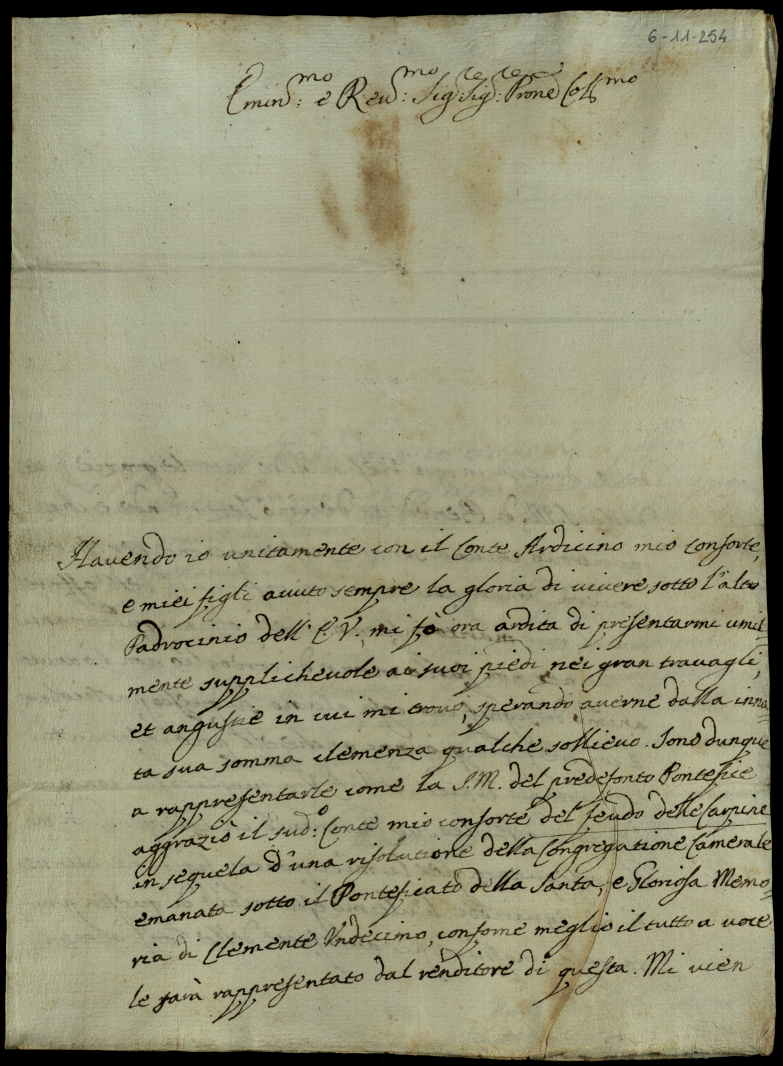 6-11-254
Emin:mo e Rev:mo Sig:re Sig:re Prone Col:mo
Havendo io unitamente con il Conte Ardicino mio consorte,
e miei figli avuto sempre la gloria di vivere sotto l'alto
Padrocinio dell' E.V., mi fò ora ardita di presentarmi umil-
mente supplichevole a i suoi piedi nei gran travagli,
et angustie in cui mi trovo, sperando averne dalla inna-
ta sua somma clemenza qualche sollievo. Sono dunque
a rappresentarle come la S.M. del predefonto Pontefice
aggraziò il sud:o Conte mio consorte del feudo delle Carpine
in sequela d'una risolutione della Congregatione Camerale
emanata sotto il Pontificato della Santa, e Gloriosa Memo-
ria di Clemente Undecimo, conforme meglio il tutto a voce
le sarà rappresentato dal renditore di questa. Mi vien